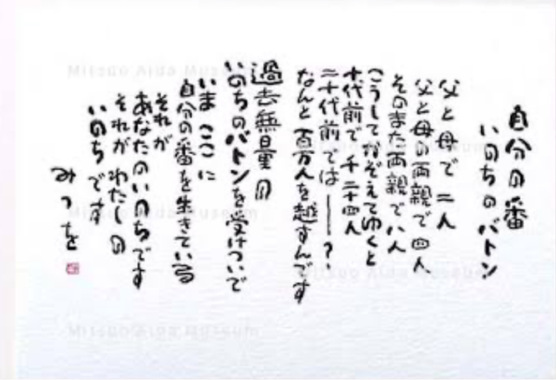 自分の番
いのちのバトン
父と母で二人
父と母の両親で四人
そのまた両親で八人
こうしてかぞえてゆくと
十代前で千二十四人
二十代前では――?
なんと百万人を越すんです
過去無量の
いのちのバトンを受けついで
いまここに
自分の番を生きている
それが
あなたのいのちです
それがわたしの
いのちです
みつを
Mitsuo Aida Museum
Mitsuo Aida Museum
Mitsuo Aida Museum
Mitsuo Aida Museum
Mitsuo Aida Museum